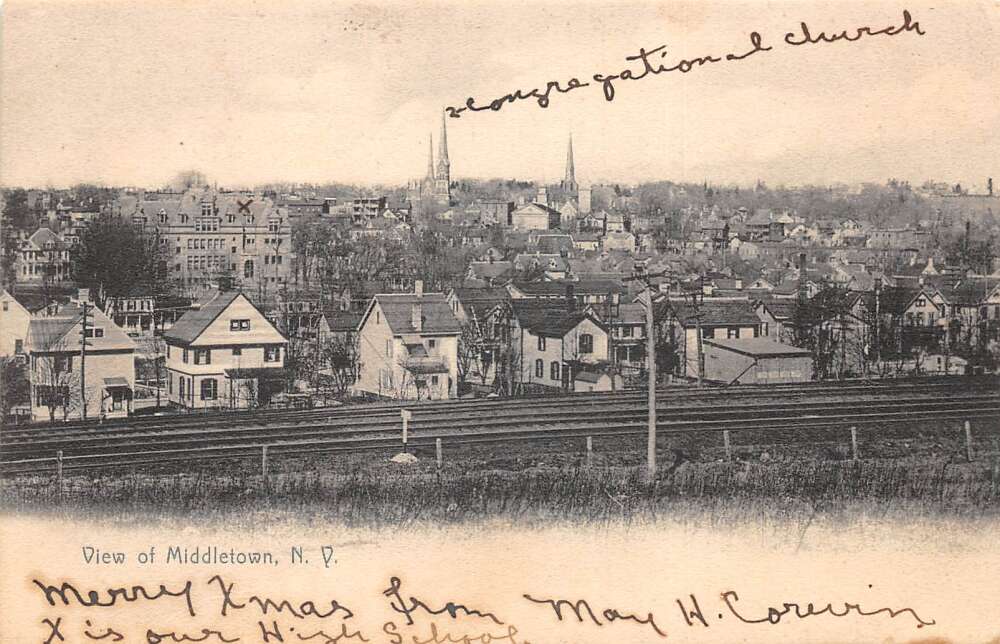 congregational church
X
View of Middletown, N. Y.
Merry Xmas from May H. Corwin
X is our High School